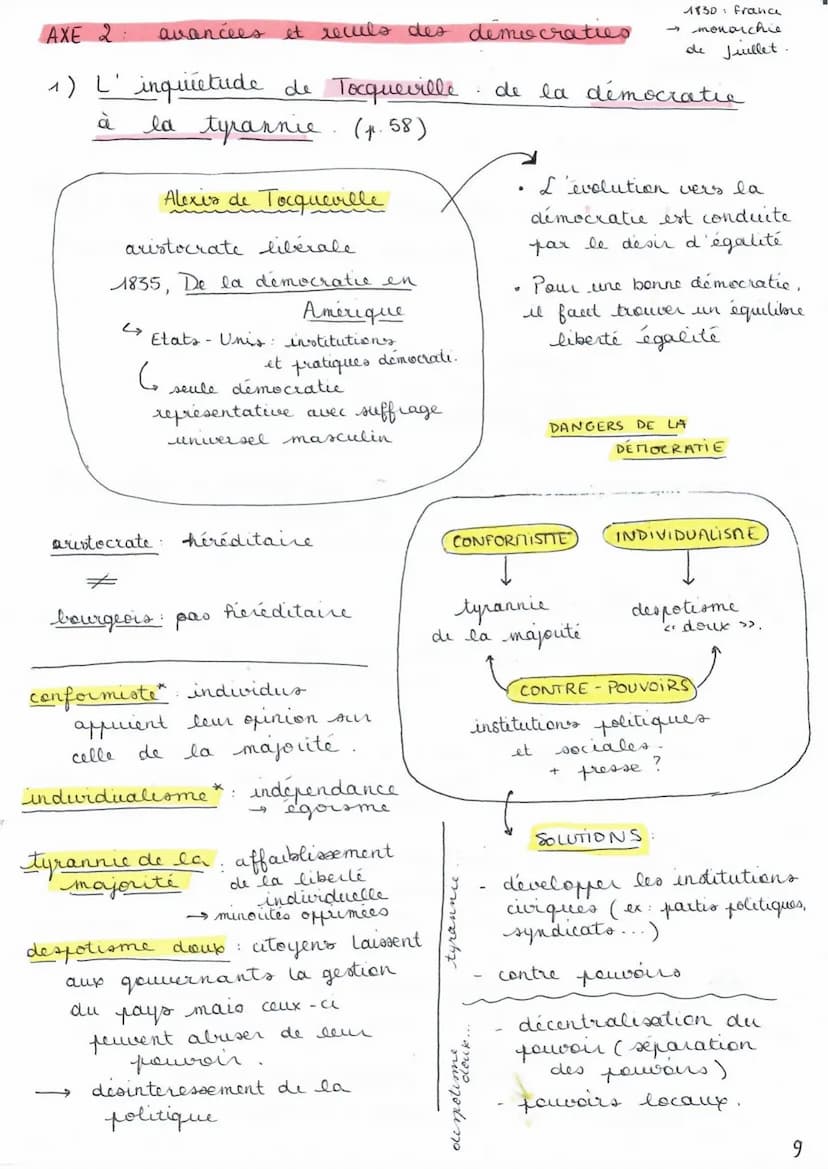 AXE 2 : avancées et reculs des démocraties
1830 : France
→ monarchie
de Juillet.
1) L'inquiétude de Tocqueville : de la démocratie
à la tyrannie. (p. 58)
Alexis de Tocqueville
aristocrate libérale
1835, De la démocratie en
Amérique
↳ Etats-Unis : institutions
et pratiques démocrati.
↳ seule démocratie
représentative avec suffrage
universel masculin
• L'évolution vers la
démocratie est conduite
par le désir d'égalité
• Pour une bonne démocratie,
il faut trouver un équilibre
liberté égalité
DANGERS DE LA
DÉMOCRATIE
aristocrate : héréditaire
≠
bourgeois : pas héréditaire
CONFORMISME
INDIVIDUALISME
tyrannie
de la majouté
despotisme
« doux ».
CONTRE-POUVOIRS
institutions politiques
et sociales.
+ presse ?
conformiste* : individus
appuient leur opinion sur
celle de la majorité.
individualisme* : indépendance
→ égoïsme
tyrannie de la : affaiblissement
majorité de la liberté
individuelle
→ minorités opprimées
despotisme doux : citoyens laissent
aux gouvernants la gestion
du pays mais ceux-ci
peuvent abuser de leur
pouvoir.
→ désinteressement de la
politique
SOLUTIONS :
tyrannie
- développer les institutions
civiques (ex : partis politiques,
syndicats...)
- contre pouvoirs
despotisme
doux...
- décentralisation du
pouvoir (séparation
des pouvoirs)
- pouvoirs locaux.
9